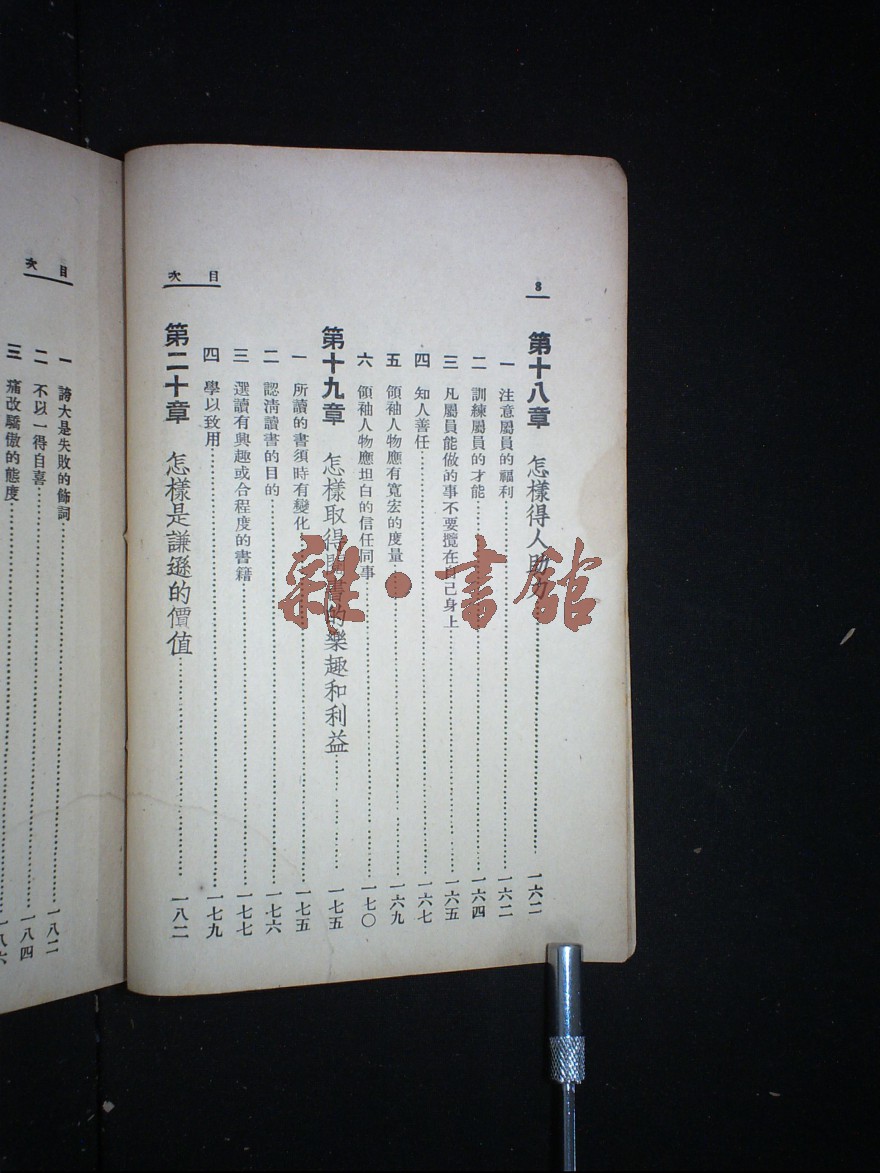 8
第十八章 怎樣得人助力 一六二
一 注意屬員的福利 一六二
二 訓練屬員的才能 一六四
三 凡屬員能做的事不要攬在自己身上 一六五
四 知人善任 一六七
五 領袖人物應有寬宏的度量 一六九
六 領袖人物應坦白的信任同事 一七〇
第十九章 怎樣取得閱書的樂趣和利益 一七五
一 所讀的書須時有變化 一七五
二 認淸讀書的目的 一七六
三 選讀有興趣或合程度的書籍 一七七
四 學以致用 一七九
第二十章 怎樣是謙遜的價值 一八二
目次
一 誇大是失敗的飾詞 一八二
二 不以一得自喜 一八四
三 痛改驕傲的態度 一八六
目次
雜·書館